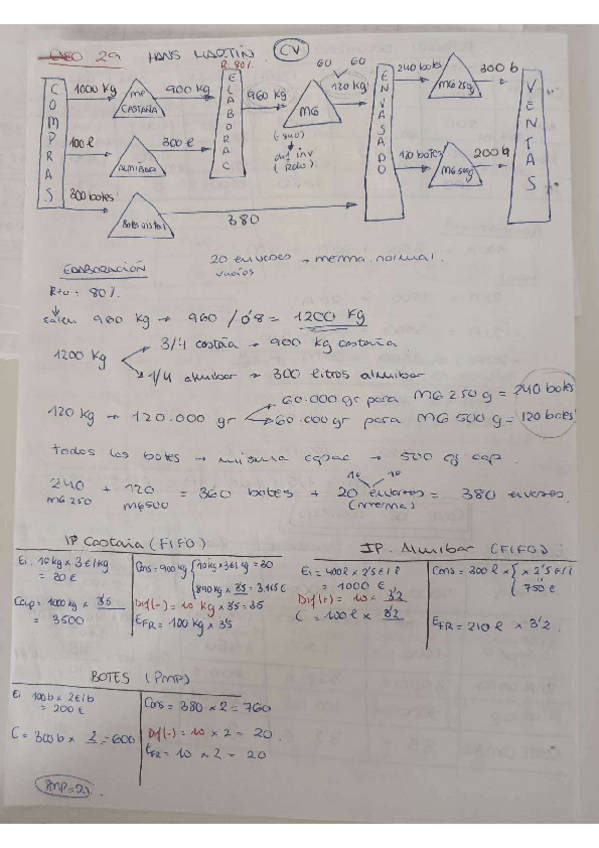 CASO 29 HANS MARTIN CV
R. 80%
COMPRAS
1000 kg
MP CASTAÑA
900 kg
100 l
ALMIBAR
300 l
300 botes
Botes cristal
380
ELABORAC
960 kg
MG
(-840)
dif inv
(Rdo)
60 60
120 kg
ENVASADO
240 bots
MG 25g
300 b
120 botes
MG 500g
200 b
VENTAS
ELABORACIÓN
20 envases → merma normal.
vacíos
Rto = 80%
salen 960 kg → 960 / 0'8 = 1200 kg
1200 kg
3/4 castaña → 900 kg castaña
1/4 almibar → 300 litros almibar
120 kg → 120.000 gr
60.000 gr para MG 250 g = 240 bots
60.000 gr para MG 500 g = 120 botes
Todos los botes → misma capac → 500 g cap.
10 10
240 + 120 = 360 botes + 20 envases = 380 envases.
MG 250 MG500 (merma)
IP Castaña (FIFO)
Ei 10 kg x 3 €/kg
= 30 €
Cap = 1000 kg x 3'5
= 3500
Cons = 900 kg
10 kg x 3 €/kg = 30
890 kg x 3'5 = 3.115 €
Dif(-) = 10 kg x 3'5 = 35
EFR = 100 kg x 3'5
IP. Almibar (FIFO)
Ei = 400 l x 2'5 €/l
= 1000 €
Dif(+) = 10 x 3'2
C = 100 l x 3'2
Cons = 300 l x x 2'5 €/l
750 €
EFR = 210 l x 3'2.
BOTES (PMP)
Ei 100 b x 2 €/b
= 200 €
C = 300 b x 2 = 600
Cons = 380 x 2 = 760
Dif(-) = 10 x 2 = 20.
EFR = 10 x 2 = 20
PMP = 2